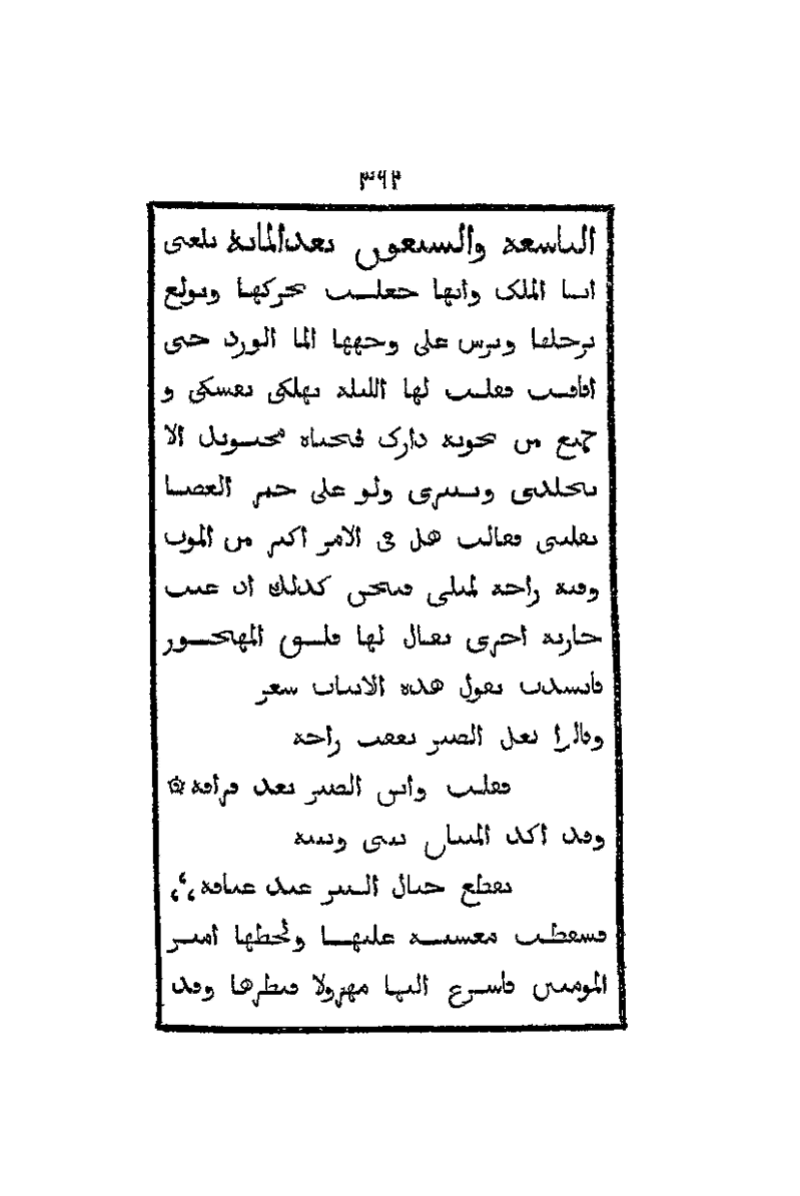 ٣٩٢
التاسعة والسبعون بعد المائة بلغني
ايها الملك وانها جعلت تحركها وتولع
برجلها وترس على وجهها الما الورد حتى
افاقت فقلت لها الليلة تهلكي نفسكي و
جميع من تحويه دارك فحياه محبوبك الا
تتجلدي وتسيري ولو على جمر الغضا
تقلبتي فقالت هل في الامر اكبر من الموت
وفيه راحة لمثلي فبينحن كذلك ان غنت
جارية اخرى يقال لها قلوق المهجور
فانشدت تقول هذه الابيات شعر
وقالوا لعل الصبر يعقب راحة
فقلت واين الصبر بعد فراقه ۞
وقد اكد الميثاق بيني وبينه
بقطع حبال الصبر عند عناقه
فسقطت مغشية عليها ولحظها امير
المومنين فاسرع اليها مهرولا فنظرها وقد